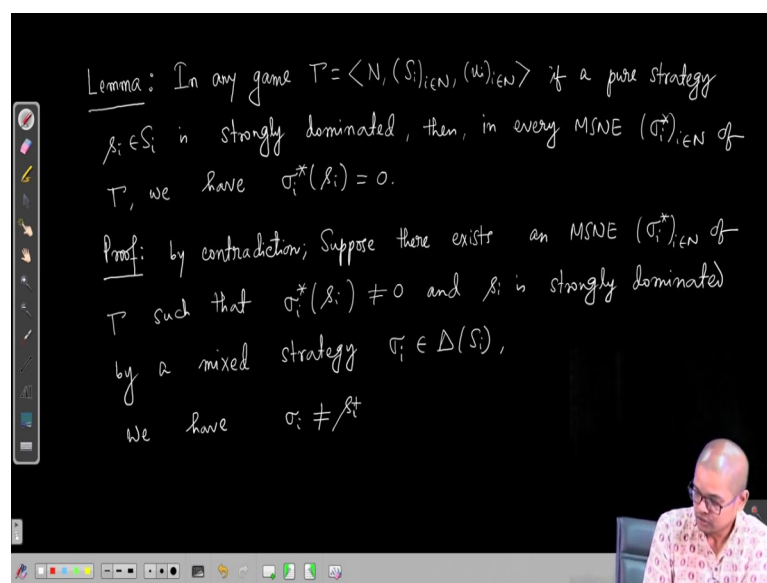 Lemma: In any game Γ = <N, (Si)i∈N, (ui)i∈N> if a pure strategy
si ∈ Si is strongly dominated, then, in every MSNE (σi*)i∈N of
Γ, we have σi*(si) = 0.
Proof: by contradiction; Suppose there exists an MSNE (σi*)i∈N of
Γ such that σi*(si) ≠ 0 and si is strongly dominated
by a mixed strategy σi ∈ Δ(Si),
we have σi ≠